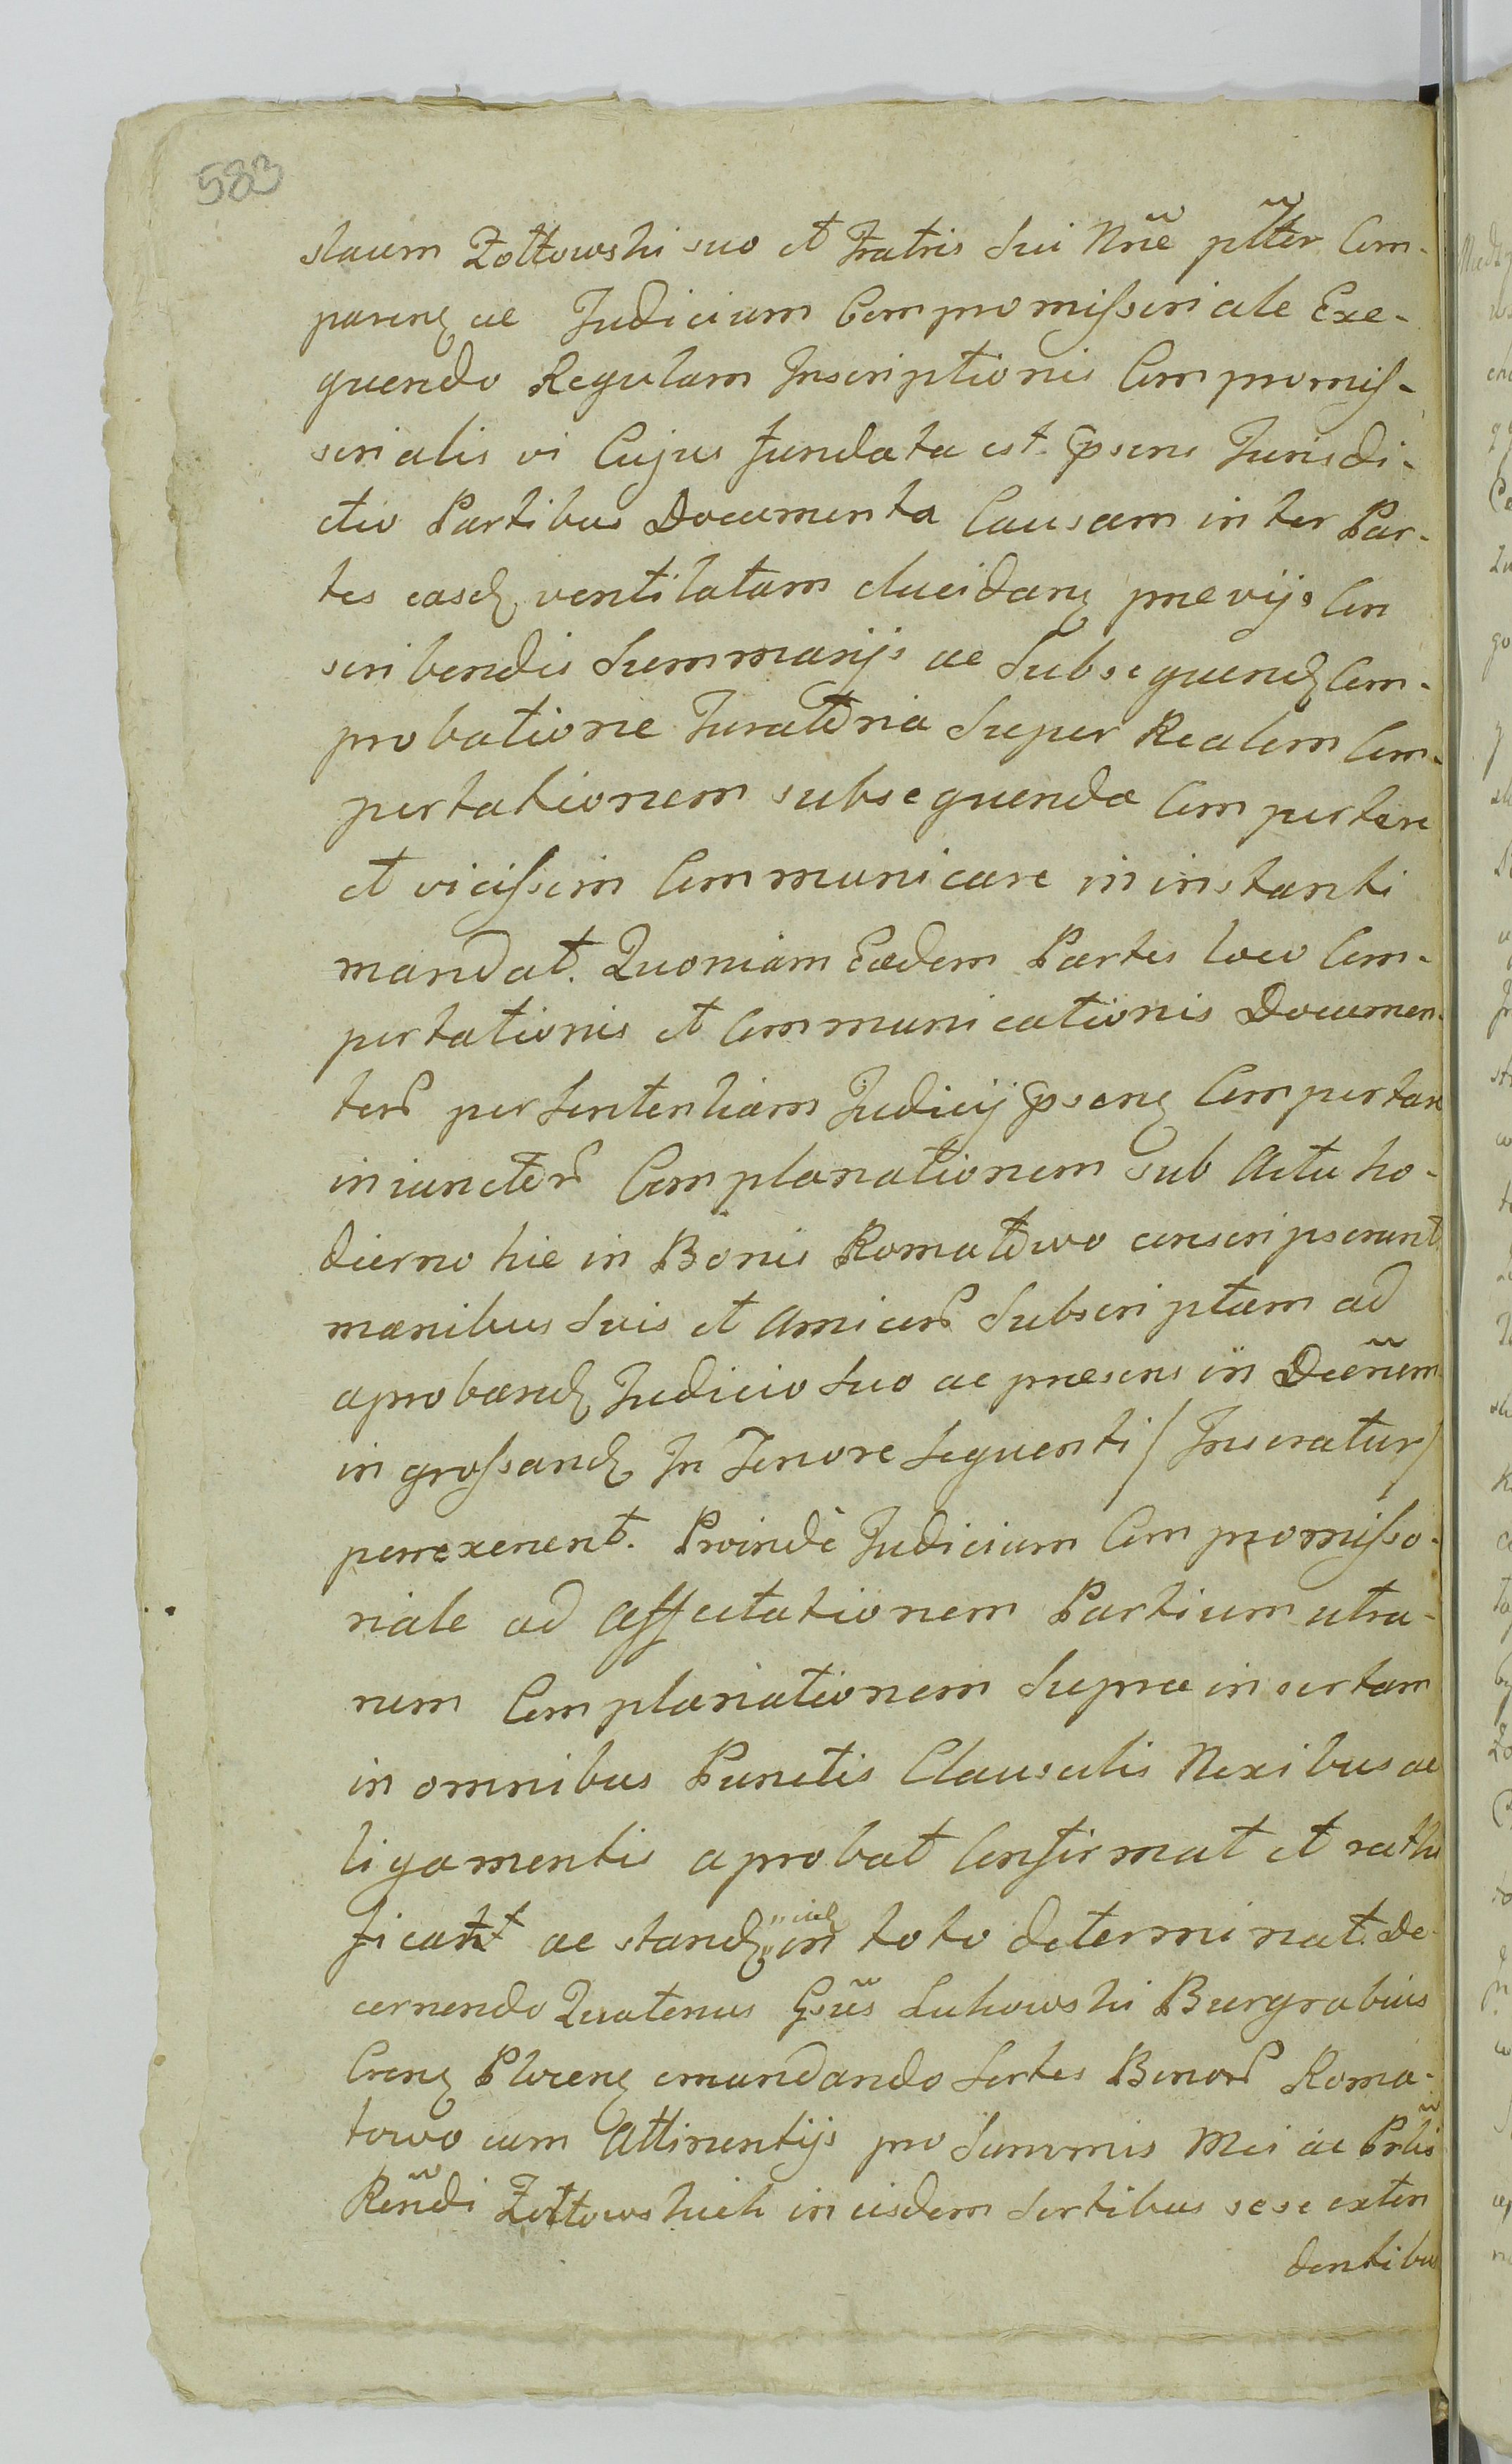 583
slaum Żołtowski suo et Fratris Sui Nñe pltter Com-
pareng ac Judicium Compromissoriale Exe-
quendo Regulam Inscriptionis Compromis-
sorialis vi Cujus fundata est psens Jurisdi-
ctio Partibus Documenta Causam inter Par-
tes easdq ventilatam elucidang praevijs Con
scribendis Summarijs ac Subsequend Com-
probatione Juratoria Super Realem Com-
portationem subsequenda Comportare
et vicissim Communicare in instanti
mandat. Quoniam Eaedem Partes loco Com-
portationis et Communicationis Documen-
tor per Sententiam Judicij pseng Comportari
iniunctor Complanationem sub Actu ho-
dierno hic in Bonis Romatowo conscripserunt
manibus Suis et Amicor Subscriptam ad
aproband Judicio Suo ac praesens in Decñum
ingrossand In Tenore Sequenti / Inseratur /
porrexerent. Proindè Judicium Compromisso-
riale ad affectationem Partium utra-
rum Complanationem Supra insertam
in omnibus Punctis Clausulis Nexibus ac
ligamentis aprobat Confirmat et rathi
ficat ac stand in toto determinat De-
cernendo Quatenus Gsus Lukowski Burgrabius
Creng Ploceng emundando Sortes Bonor Roma-
towo cum Attinentijs pro Summis Mei ac Prlis
Rendi Żołtowskich in eisdem Sortibus sese exten
dentibus